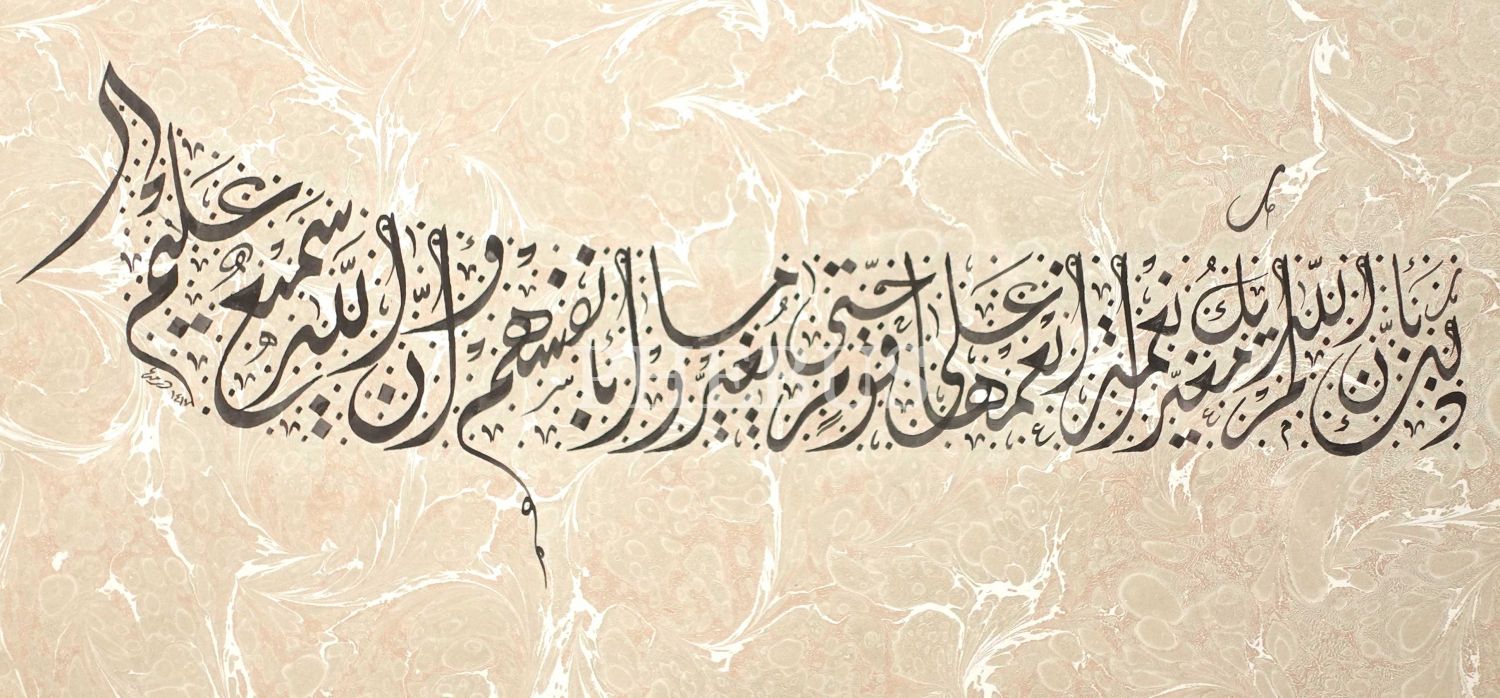 ذَٰلِكَ بِأَنَّ اللَّهَ لَمْ يَكُ مُغَيِّرًا نِعْمَةً أَنْعَمَهَا عَلَىٰ قَوْمٍ حَتَّىٰ يُغَيِّرُوا مَا بِأَنْفُسِهِمْ وَأَنَّ اللَّهَ سَمِيعٌ عَلِيمٌ